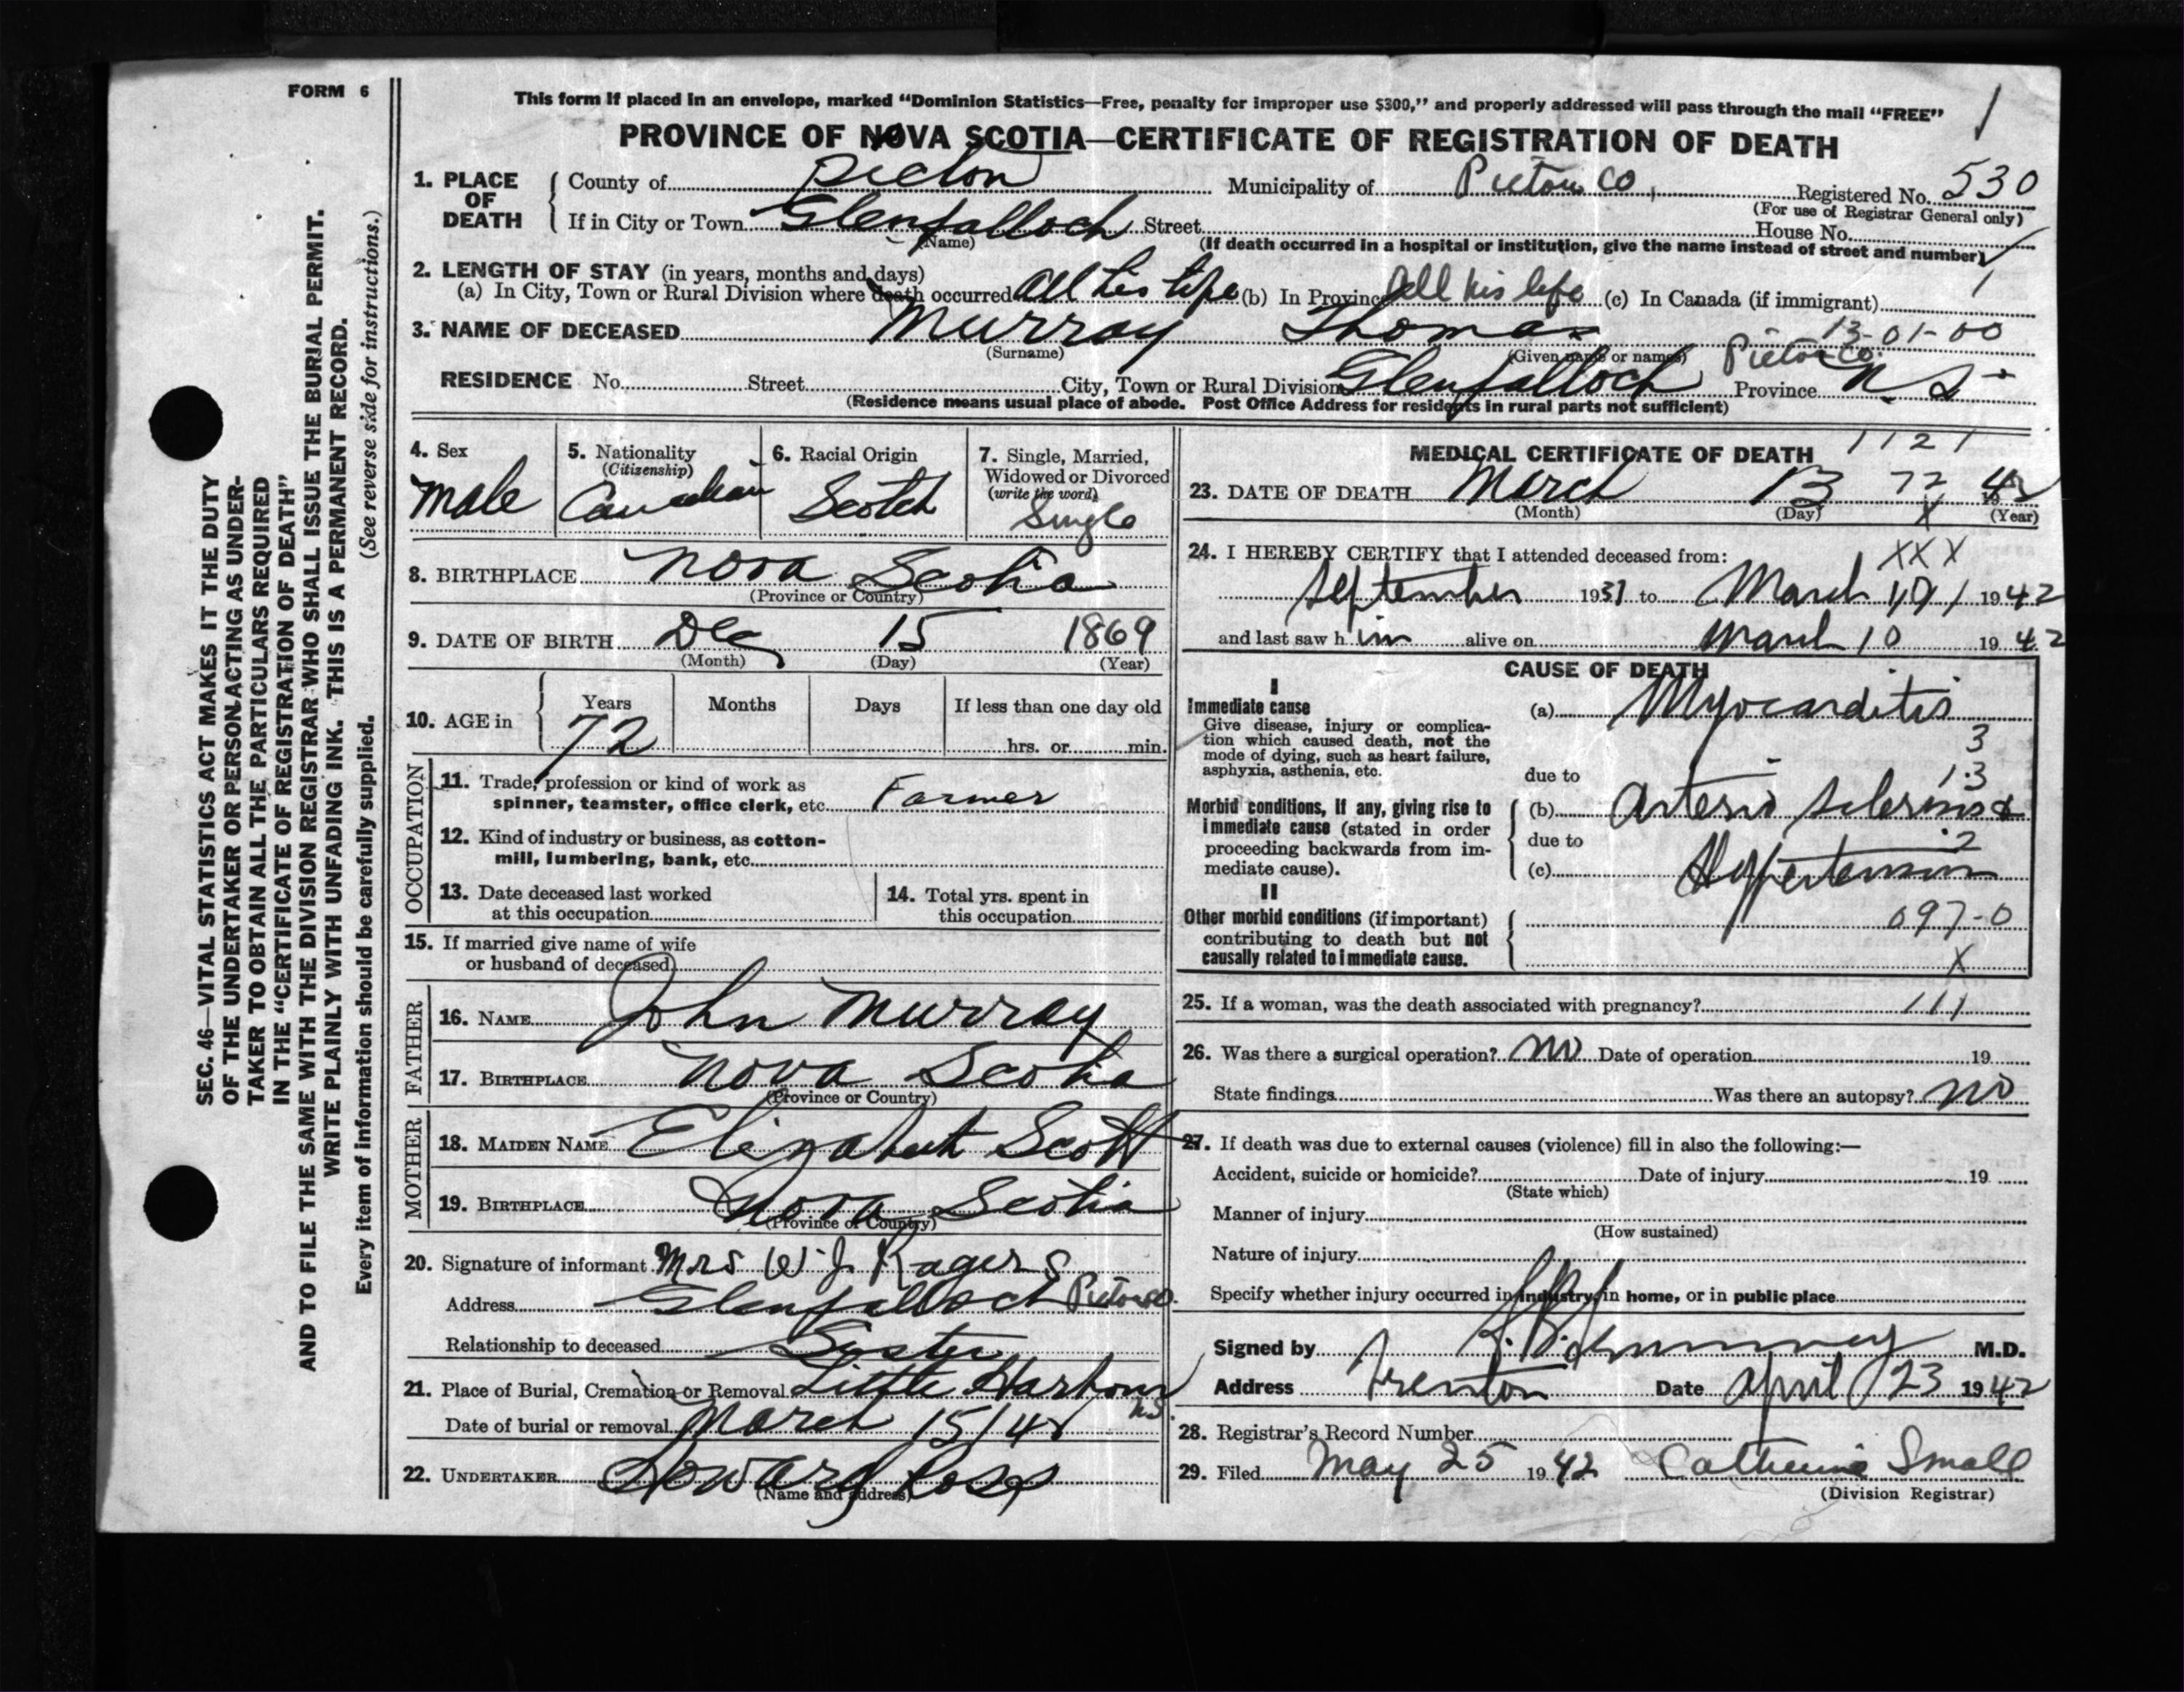 FORM 6
This form if placed in an envelope, marked “Dominion Statistics—Free, penalty for improper use $300,” and properly addressed will pass through the mail “FREE” 1
PROVINCE OF NOVA SCOTIA—CERTIFICATE OF REGISTRATION OF DEATH
1. PLACE OF DEATH County of Pictou Municipality of Pictou Co, Registered No. 530
(For use of Registrar General only)
If in City or Town Glenfalloch Street House No.
(Name) (If death occurred in a hospital or institution, give the name instead of street and number)
2. LENGTH OF STAY (in years, months and days)
(a) In City, Town or Rural Division where death occurred All his life (b) In Province All his life (c) In Canada (if immigrant)
3. NAME OF DECEASED Murray Thomas 13-01-00
(Surname) (Given name or names) Pictou Co.
RESIDENCE No. Street City, Town or Rural Division Glenfalloch Province N.S.
(Residence means usual place of abode. Post Office Address for residents in rural parts not sufficient)
4. Sex
Male
5. Nationality
(Citizenship)
Canadian
6. Racial Origin
Scotch
7. Single, Married,
Widowed or Divorced
(write the word)
Single
8. BIRTHPLACE Nova Scotia
(Province or Country)
9. DATE OF BIRTH Dec 15 1869
(Month) (Day) (Year)
10. AGE in Years Months Days If less than one day old
72 hrs. or min.
OCCUPATION
11. Trade, profession or kind of work as
spinner, teamster, office clerk, etc. Farmer
12. Kind of industry or business, as cotton-
mill, lumbering, bank, etc.
13. Date deceased last worked
at this occupation
14. Total yrs. spent in
this occupation
15. If married give name of wife
or husband of deceased
FATHER
16. NAME John Murray
17. BIRTHPLACE Nova Scotia
(Province or Country)
MOTHER
18. MAIDEN NAME Elizabeth Scott
19. BIRTHPLACE Nova Scotia
(Province or Country)
20. Signature of informant Mrs W. J. Ragers
Address Glenfalloch Pictou Co.
Relationship to deceased Sister
21. Place of Burial, Cremation or Removal Little Harbour
N.S.
Date of burial or removal March 15/42
22. UNDERTAKER Howard Ross
(Name and address)
MEDICAL CERTIFICATE OF DEATH 1121
23. DATE OF DEATH March 13 72 1942
(Month) (Day) X (Year)
24. I HEREBY CERTIFY that I attended deceased from: XXX
September 1931 to March 10, 1942
and last saw him alive on March 10 1942
CAUSE OF DEATH
I
Immediate cause
Give disease, injury or complica-
tion which caused death, not the
mode of dying, such as heart failure,
asphyxia, asthenia, etc.
(a) Myocarditis
3
13
due to
Morbid conditions, if any, giving rise to
immediate cause (stated in order
proceeding backwards from im-
mediate cause).
(b) Arterio sclerosis &
due to 2
(c) Hypertension
II
Other morbid conditions (if important)
contributing to death but not
causally related to immediate cause.
097-0
X
25. If a woman, was the death associated with pregnancy? 111
26. Was there a surgical operation? No Date of operation 19
State findings Was there an autopsy? No
27. If death was due to external causes (violence) fill in also the following:—
Accident, suicide or homicide? Date of injury 19
(State which)
Manner of injury
(How sustained)
Nature of injury
Specify whether injury occurred in industry, in home, or in public place
Signed by M.D.
Address Trenton Date April 23 1942
28. Registrar's Record Number
29. Filed May 25 1942 Catherine Small
(Division Registrar)
SEC. 46—VITAL STATISTICS ACT MAKES IT THE DUTY
OF THE UNDERTAKER OR PERSON ACTING AS UNDER-
TAKER TO OBTAIN ALL THE PARTICULARS REQUIRED
IN THE “CERTIFICATE OF REGISTRATION OF DEATH”
AND TO FILE THE SAME WITH THE DIVISION REGISTRAR WHO SHALL ISSUE THE BURIAL PERMIT.
WRITE PLAINLY WITH UNFADING INK. THIS IS A PERMANENT RECORD.
Every item of information should be carefully supplied. (See reverse side for instructions.)